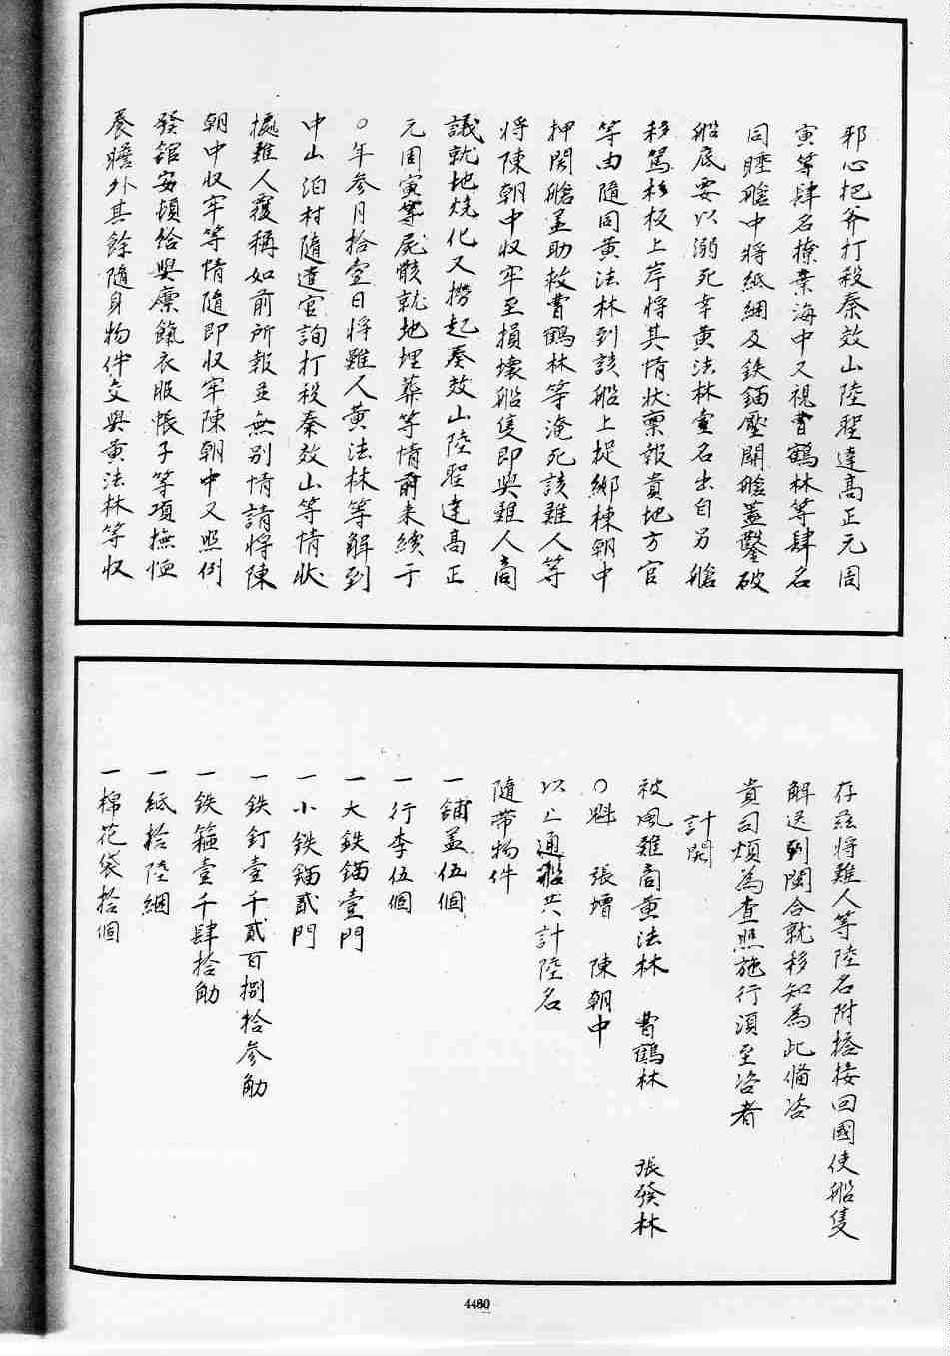 邪心把斧打殺秦效山陸聖達高正元周
寅等肆名撩棄海中又視曹鶴林等肆名
同睡艙中將紙綑及鉄錨壓關艙蓋鑿破
船底要以溺死幸黃法林壹名出自另艙
移駕杉板上岸將其情狀稟報貴地方官
等由隨同黃法林到該船上捉綁陳朝中
押開艙並助救曹鶴林等淹死該難人等
將陳朝中收牢至損壞船隻即與難人商
議就地燒化又撈起秦效山陸聖達高正
元周寅等屍骸就地埋葬等情前來續于
○年參月拾壹日將難人黃法林等解到
中山泊村隨遣官詢打殺秦效山等情狀
據難人覆稱如前所報並無別情請將陳
朝中收牢等情隨即收牢陳朝中又照例
發館安頓給與廩餼衣服帳子等項撫恤
養贍外其餘隨身物件交與黃法林等收
存茲將難人等陸名附搭接回國使船隻
解送到閩合就移知為此備咨
貴司煩為查照施行須至咨者
計開
被風難商黃法林 曹鶴林 張發林
○魁 張增 陳朝中
以上通船共計陸名
隨帶物件
一舖盖伍個
一行李伍個
一大鉄錨壹門
一小鉄錨貳門
一鉄釘壹千貳百捌拾參觔
一鉄箍壹千肆拾觔
一紙拾陸綑
一棉花袋拾個
4480